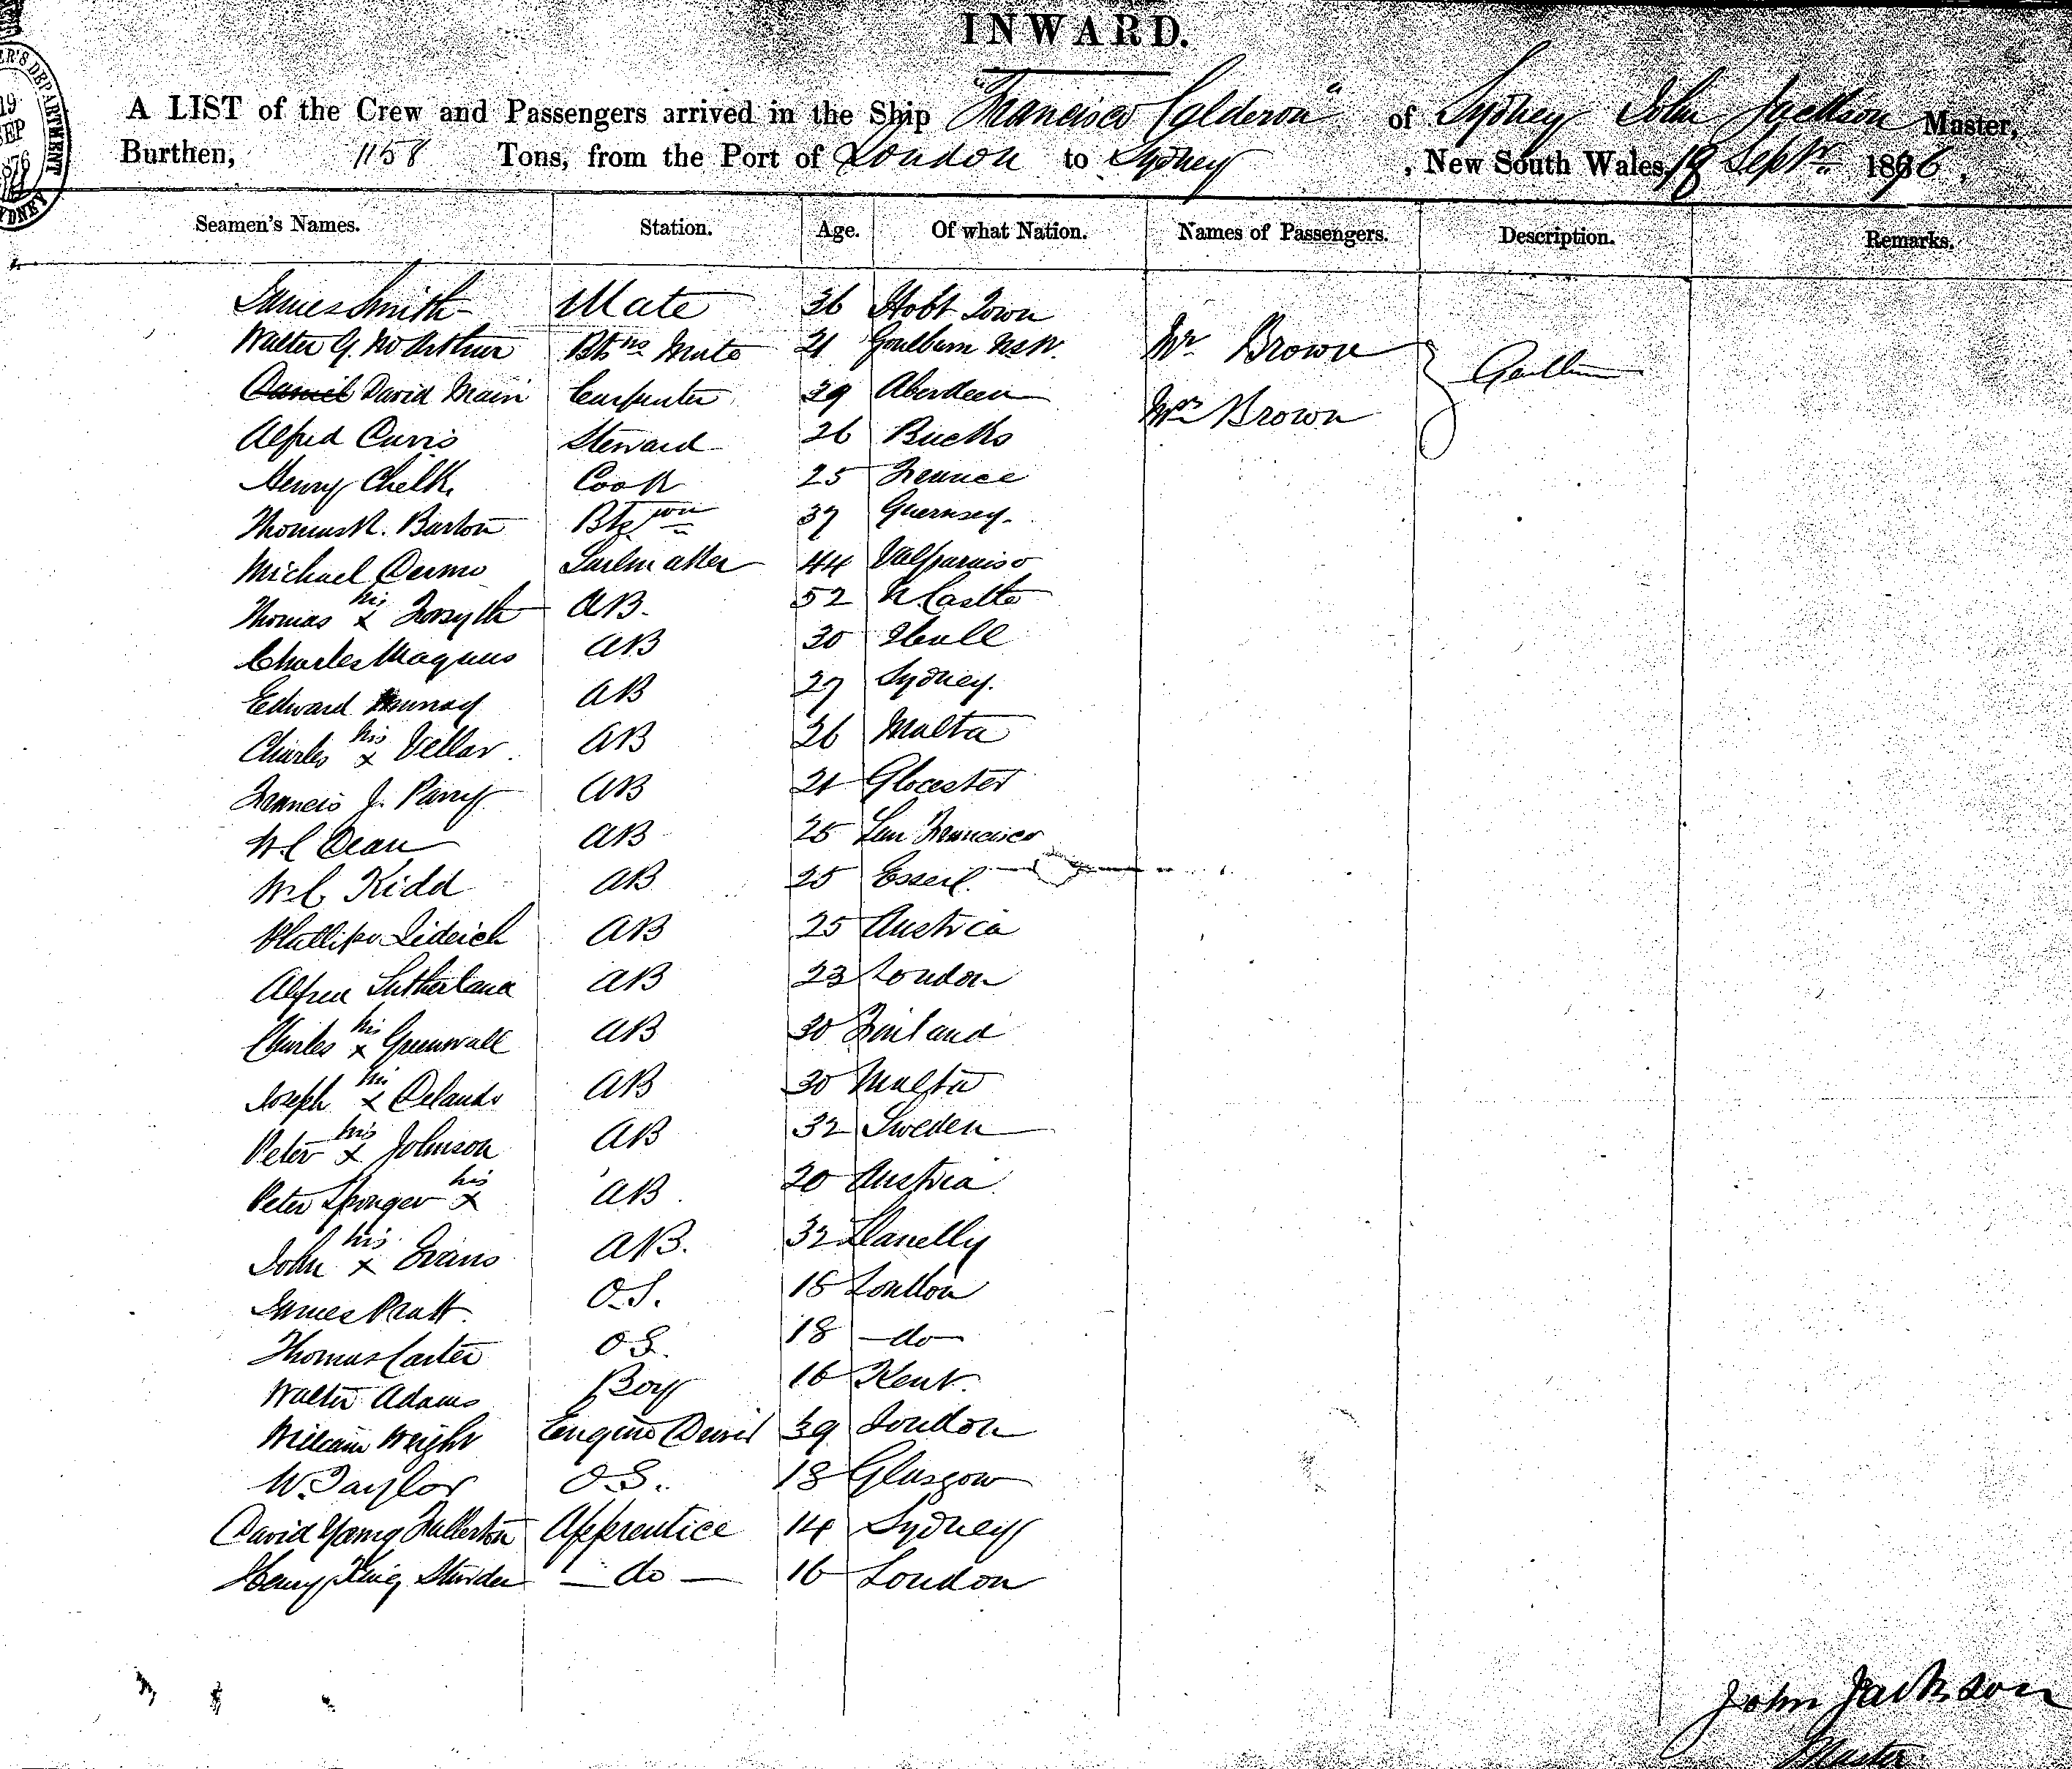 INWARD.
A LIST of the Crew and Passengers arrived in the Ship "Francisco Calderon" of Sydney John Jackson Master,
Burthen, 1158 Tons, from the Port of London to Sydney, New South Wales, 19 Septr. 1876.
SEP
SYDNEY
Seamen's Names. Station. Age. Of what Nation. Names of Passengers. Description. Remarks.
James Smith Mate 36 Hobt Town
Walter G. McArthur Mate 21 Goulburn NSW. Mr Brown
David Main Carpenter 39 Aberdeen Mrs Brown
Alfred Steward 26 Bucks
Henry Chelk Cook 25 France
Thomas R. Burton 37 Guernsey.
Michael Sailmaker 44 Valparaiso
Thomas his x Forsyth AB. 52 N.Castle
Charles Magnus AB 30 Hull
Edward Murray AB 27 Sydney.
Charles his x Vellar AB 26 Malta
Francis J. Parry AB 21 Glocester
W C Dean AB 25 San Francisco
W C Kidd AB 25 Essex
AB 25 Austria
Alfred Sutherland AB 23 London
Charles his x Greenwall AB 30 Finland
Joseph his x AB 30 Malta
Peter his x Johnson AB 32 Sweden
Peter Sponger his x AB 20 Austria
John his x Evans AB. 32 Llanelly
James Pratt O.S. London
Thomas Carter O.S. 18 — do —
Walter Adams Boy 16 Kent.
William Wright Engine 39 London
W. Taylor O.S. 18 Glasgow
David Young Fullerton Apprentice 14 Sydney
Henry King — do — 16 London
John Jackson
Master